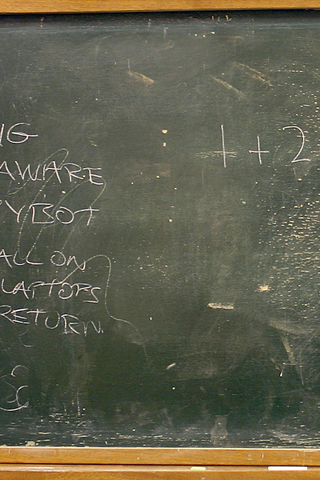 1 + 2
AWARE
YBOT
ALL ON
LAPTOPS
RETURN